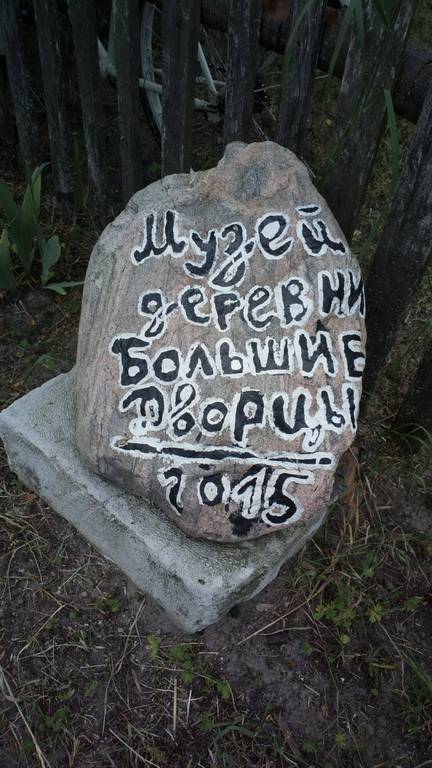 Музей
деревни
Большие
Дворцы
2015